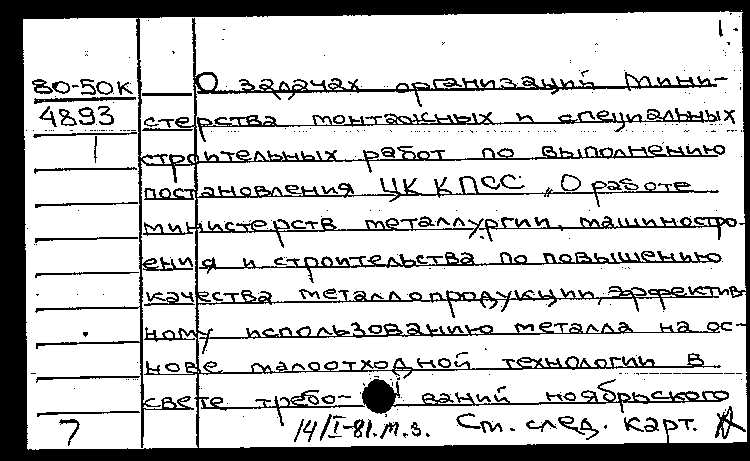 1.
80-50к О задачах организаций Мини-
4893 стерства монтажных и специальных
1 строительных работ по выполнению
постановления ЦК КПСС „О работе
министерств металлургии, машиностро-
ения и строительства по повышению
качества металлопродукции, эффектив-
ному использованию металла на ос-
нове малоотходной технологии в
свете требо- ваний ноябрьского
7 14/I-81.м.з. См. след. карт.